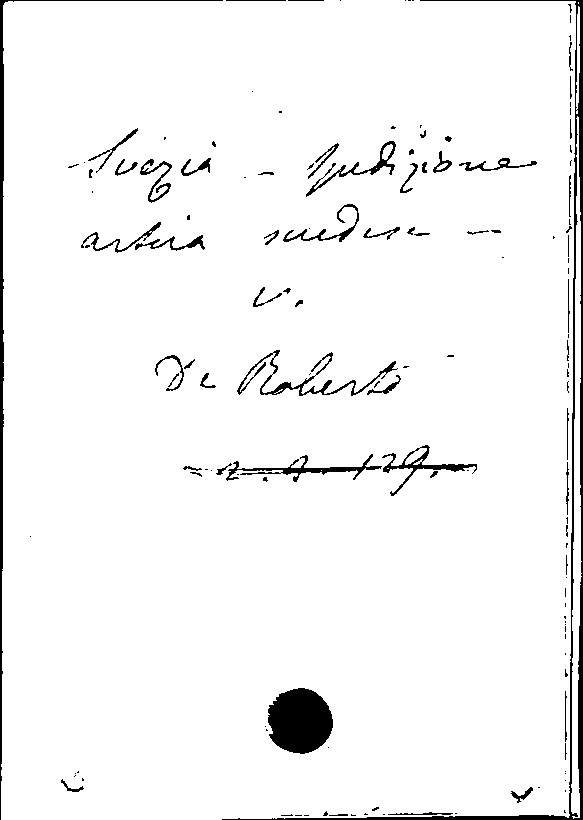 Svezia - spedizione
artica svedese -
v.
De Roberto
2. 2. 129.